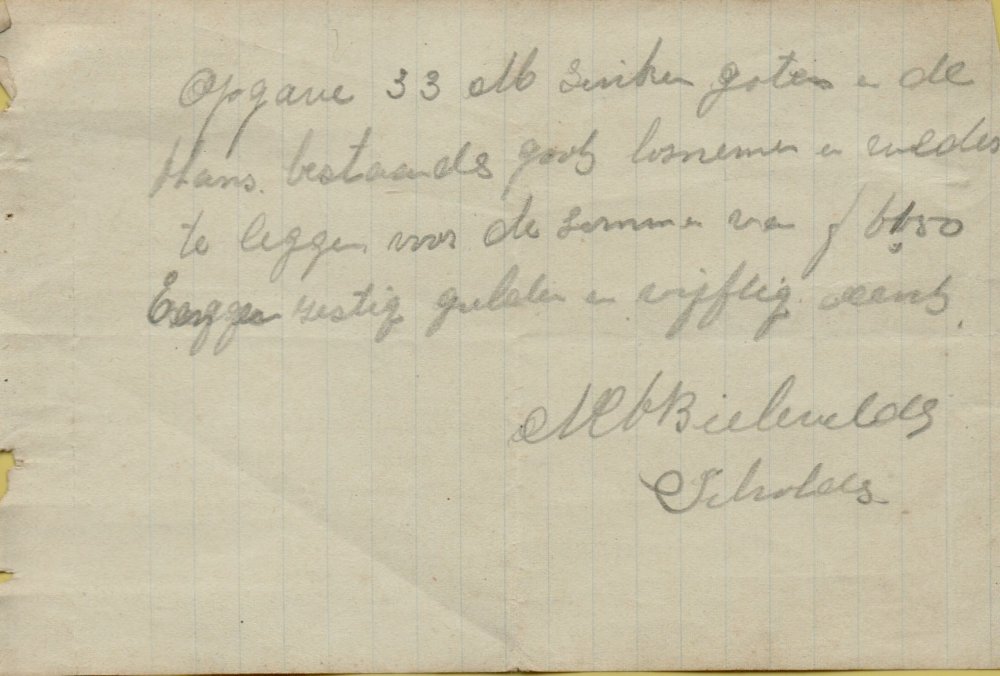 Opgave 33 M zinken goten en de
thans bestaande goot losnemen en weder
te leggen voor de somma van f 61.50
Een zestig gulden en vijftig cent.
Bieleveldt
Scholdes